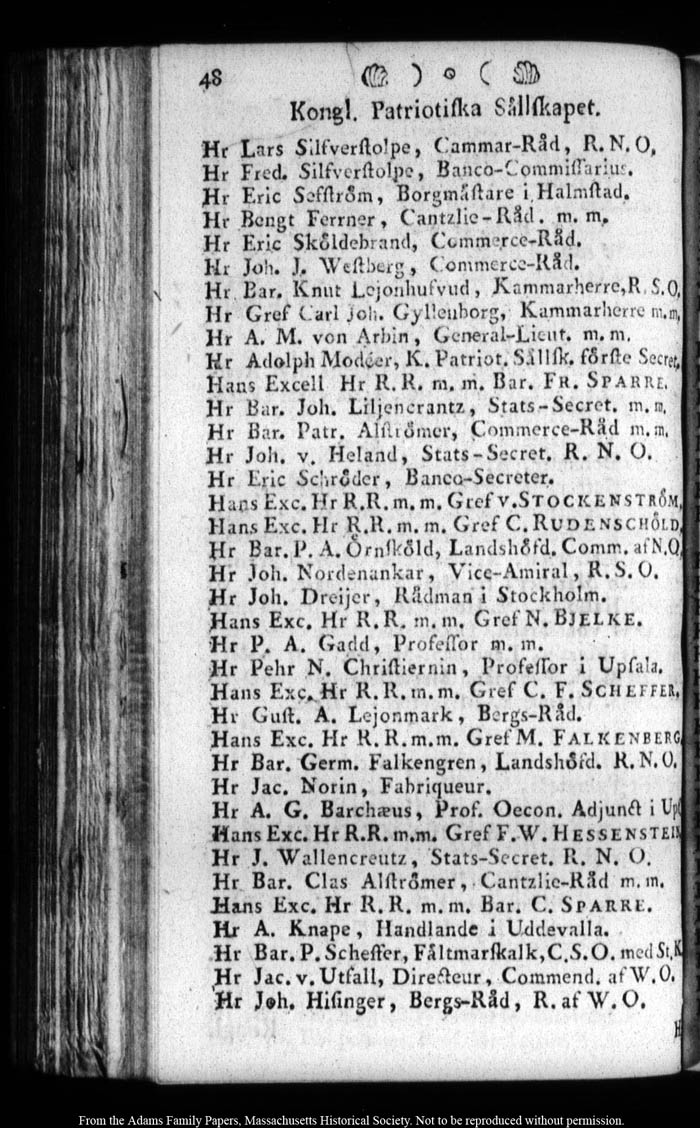 48 ) ∘ (
Kongl. Patriotiſka Sållſkapet.
Hr Lars Silfverſtolpe, Cammar-Råd, R. N. O,
Hr Fred. Silfverſtolpe, Banco-Commiſſarius.
Hr Eric Sefſtrôm, Borgmåſtare i Halmſtad.
Hr Bengt Ferrner, Cantzlie-Råd. m. m.
Hr Eric Skôldebrand, Commerce-Råd.
Hr Joh. J. Weſtberg, Commerce-Råd.
Hr Bar. Knut Lejonhufvud, Kammarherre, R. S. O,
Hr Gref Carl Joh. Gyllenborg, Kammarherre m.m,
Hr A. M. von Arbin, General-Lieut. m. m.
Hr Adolph Modéer, K. Patriot. Sållſk. fôrſte Secret,
Hans Excell Hr R. R. m. m. Bar. FR. SPARRE.
Hr Bar. Joh. Liljencrantz, Stats-Secret. m. m,
Hr Bar. Patr. Alſtrômer, Commerce-Råd m. m.
Hr Joh. v. Heland, Stats-Secret. R. N. O.
Hr Eric Schrôder, Banco-Secreter.
Hans Exc. Hr R.R. m. m. Gref v. STOCKENSTRÔM,
Hans Exc. Hr R.R. m. m. Gref C. RUDENSCHÔLD,
Hr Bar. P. A. Ôrnſkôld, Landshôfd. Comm. af N.O,
Hr Joh. Nordenankar, Vice-Amiral, R. S. O.
Hr Joh. Dreijer, Rådman i Stockholm.
Hans Exc. Hr R. R. m. m. Gref N. BJELKE.
Hr P. A. Gadd, Profeſſor m. m.
Hr Pehr N. Chriſtiernin, Profeſſor i Upſala.
Hans Exc. Hr R. R. m. m. Gref C. F. SCHEFFER,
Hr Guſt. A. Lejonmark, Bergs-Råd.
Hans Exc. Hr R. R. m.m. Gref M. FALKENBERG
Hr Bar. Germ. Falkengren, Landshôfd. R. N. O.
Hr Jac. Norin, Fabriqueur.
Hr A. G. Barchæus, Prof. Oecon. Adjunct i Upſ
Hans Exc. Hr R.R. m.m. Gref F.W. HESSENSTEIN
Hr J. Wallencreutz, Stats-Secret. R. N. O.
Hr Bar. Clas Alſtrômer, Cantzlie-Råd m. m.
Hans Exc. Hr R. R. m. m. Bar. C. SPARRE.
Hr A. Knape, Handlande i Uddevalla.
Hr Bar. P. Scheffer, Fåltmarſkalk, C.S.O. med St, K
Hr Jac. v. Utfall, Directeur, Commend. af W.O.
Hr Joh. Hiſinger, Bergs-Råd, R. af W. O.
H
From the Adams Family Papers, Massachusetts Historical Society. Not to be reproduced without permission.